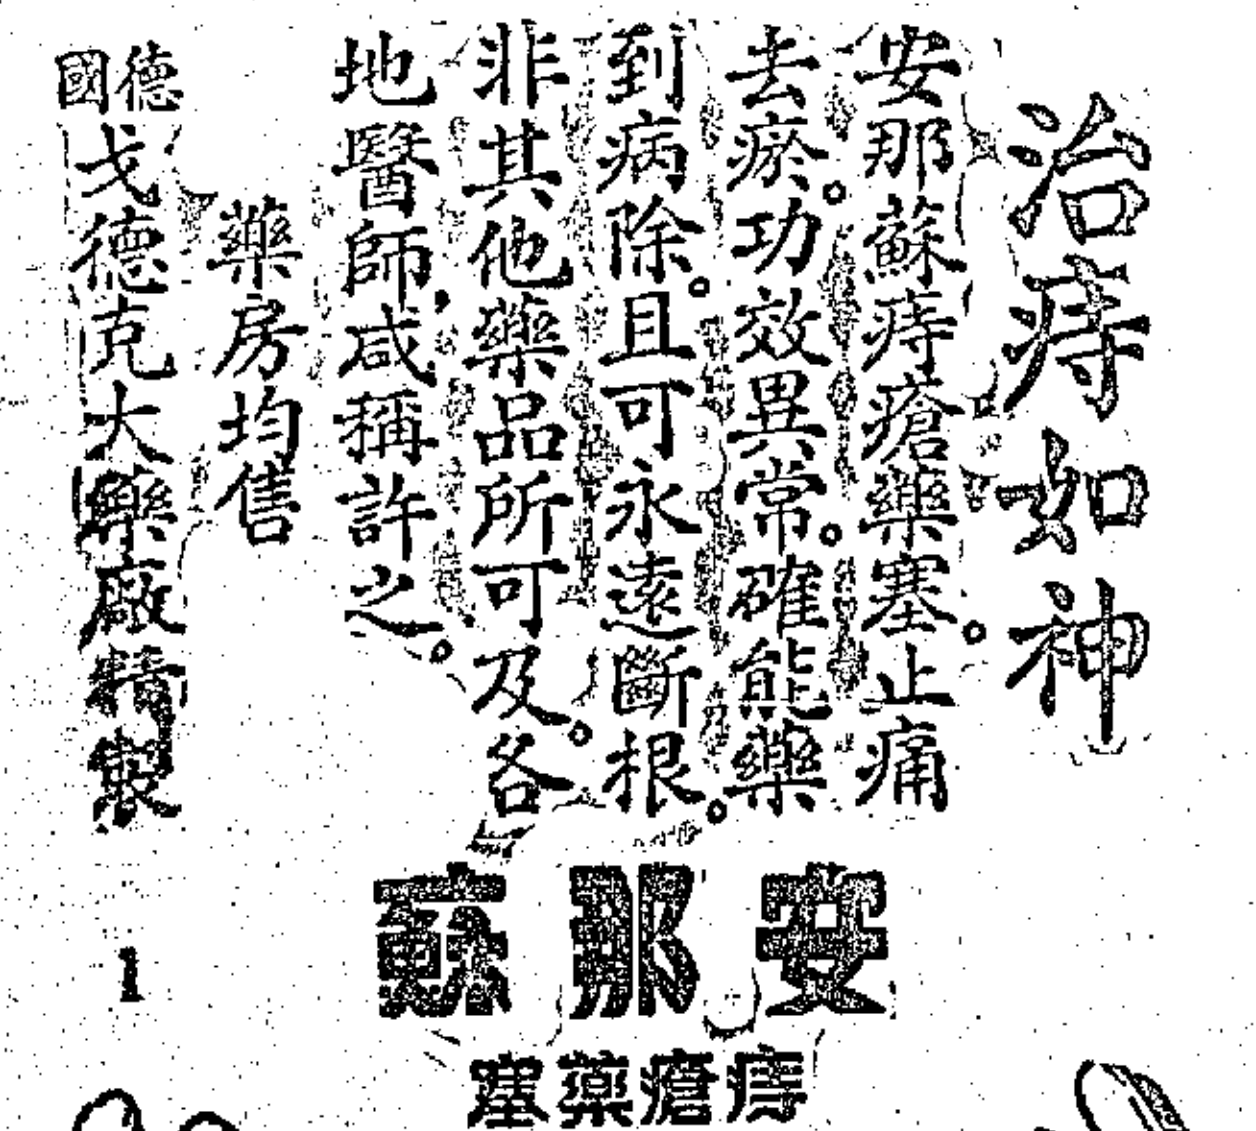 治痔如神
安那蘇痔瘡藥塞。止痛
去瘀。功效異常。確能藥
到病除。且可永遠斷根。
非其他藥品所可及。各
地醫師，咸稱許之。
藥房均售
德國戈德克大藥廠精製
安那蘇
痔瘡藥塞
1